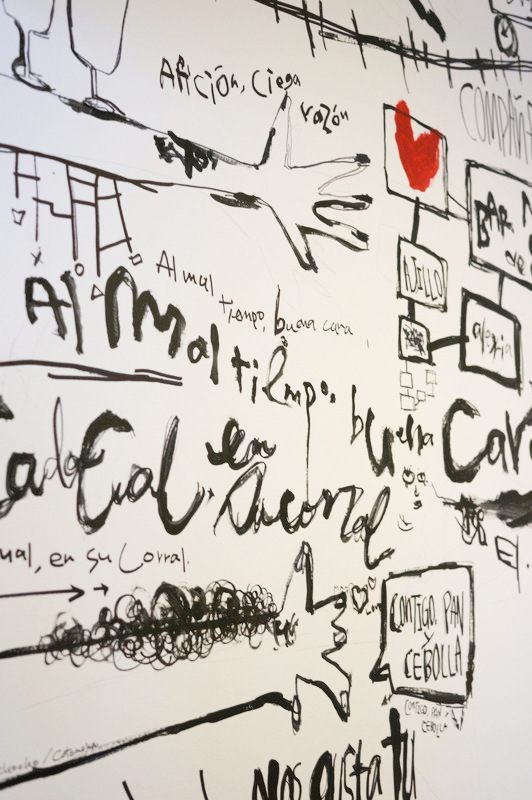 Afición, Ciega
razón
COMPAÑ
BAR
AJILLO
alegria
Al mal
tiempo, buena cara
Al Mal tiempo, buena Cara
Cada Cual en
Su corral
ual, en su Corral.
El.
CONTIGO, PAN
Y
CEBOLLA
CONTIGO, PAN Y
CEBOLLA
Nos gusta tu